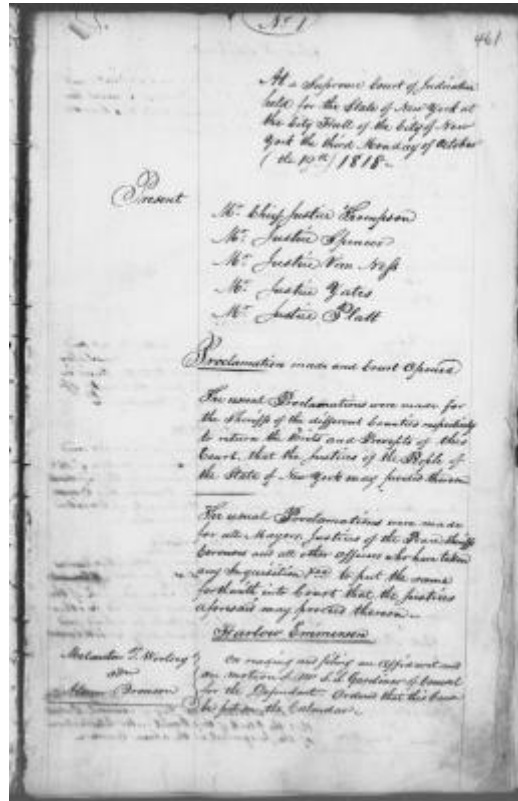 No 1
461
At a Supreme Court of Judicature
held for the State of New York at
the City Hall of the City of New
York the third Monday of October
(the 19th) 1818-
Present
Mr. Chief Justice Thompson
Mr. Justice Spencer
Mr. Justice Van Ness
Mr. Justice Yates
Mr. Justice Platt
Proclamation made and Court Opened
The usual Proclamations were made for
the Sheriffs of the different Counties respectively
to return the Writs and Precepts of this
Court, that the Justices of the People of
the State of New York may proceed thereon
The usual Proclamations were made
for all Mayors, Justices of the Peace, Sheriffs
Coroners and all other Officers who have taken
any Inquisition &ca to put the same
forthwith into Court that the Justices
aforesaid may proceed thereon -
Harlow Emmensen
T. Woolsey
adsm
Bronson
On reading and filing an Affidavit and
on motion of Mr Gardiner of Counsel
for the Defendant Ordered that this Cause
be put on the Calendar -